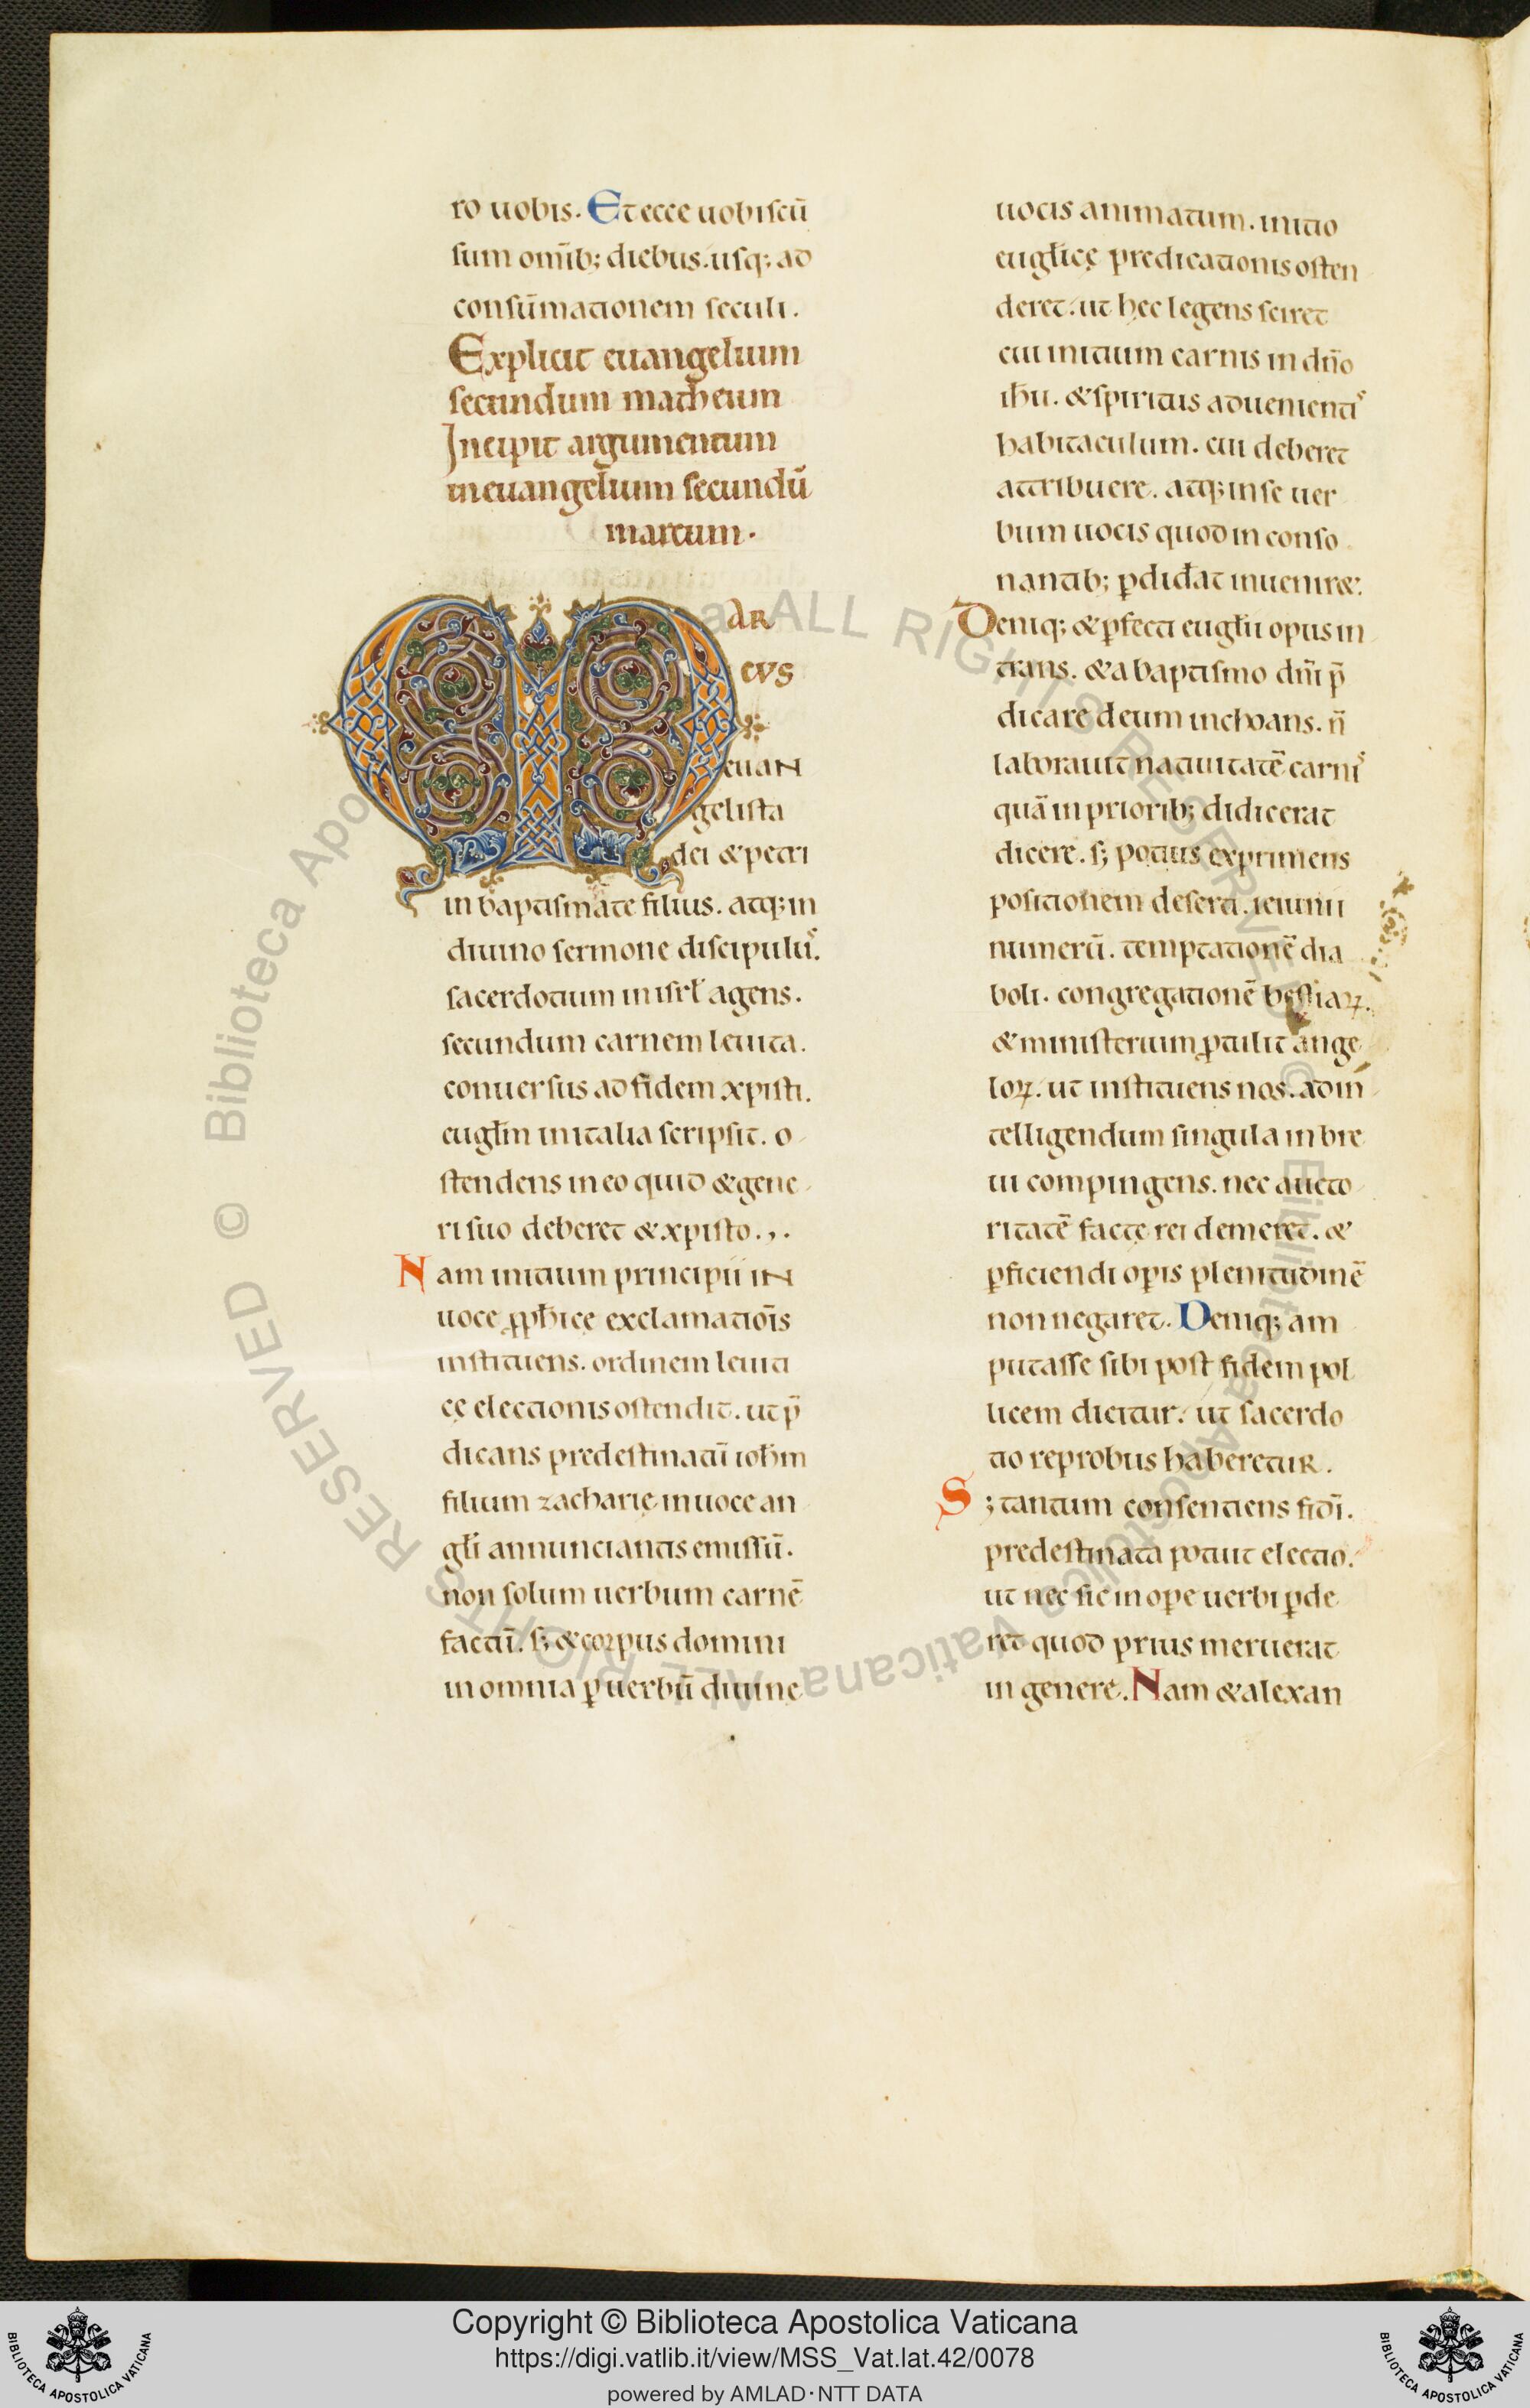 ro uobis. Et ecce uobiscū
sum omīb; diebus. usq; ad
consūmationem seculi.
Explicit euangelium
secundum matheum
Incipit argumentum
in euangelium secundū
marcum.
MAR
CVS
euaN
gelista
dei & petri
in baptismate filius. atq; in
diuino sermone discipulus.
sacerdotium in isrł agens.
secundum carnem leuita.
conuersus ad fidem xpisti.
eugłm in italia scripsit. o
stendens in eo quid & gene
ri suo deberet & xpisto.
Nam initium principii iN
uoce ꝓph̄ice exclamatiōis
instituens. ordinem leuiti
cę electionis ostendit. ut p̄
dicans predestinatū ioh̄m
filium zacharię in uoce an
głi annunciantis emissū.
non solum uerbum carnē
factū. s; & corpus domini
in omnia ꝑ uerbū diuine
uocis animatum. initio
eugłicę predicationis osten
deret. ut hęc legens sciret
cui initium carnis in dn̄o
ih̄u. & spiritus aduenientis
habitaculum. cui deberet
attribuere. atq; in se uer
bum uocis quod in conso
nantib; ꝑdiđat inuenir&.
Deniq; & ꝑfecti eugłii opus in
trans. & a baptismo dn̄i p̄
dicare deum inchoans. n̄
laborauit natiuitatē carnis
quā in priorib; didicerat
dicere. s; potius exprimens
positionem deserti. ieiunii
numerū. temptationē dia
boli. congregationē bestiaꝝ.
& ministerium ꝓtulit ange
loꝝ. ut instituens nos. ad in
telligendum singula in bre
ui compingens. nec aucto
ritatē factę rei demeret. &
ꝑficiendi opis plenitudinē
non negaret. Deniq; am
putasse sibi post fidem pol
licem dicitur. ut sacerdo
tio reprobus habereтuR.
S; tantum consentiens fidī.
predestinata potuit electio.
ut nec sic in ope uerbi ꝑde
ret quod prius meruerat
in genere. Nam & alexan
© Biblioteca Apostolica Vaticana ALL RIGHTS RESERVED © Biblioteca Apostolica Vaticana ALL RIGHTS RESERVED
Copyright © Biblioteca Apostolica Vaticana
https://digi.vatlib.it/view/MSS_Vat.lat.42/0078
powered by AMLAD·NTT DATA
BIBLIOTECA APOSTOLICA VATICANA
BIBLIOTECA APOSTOLICA VATICANA